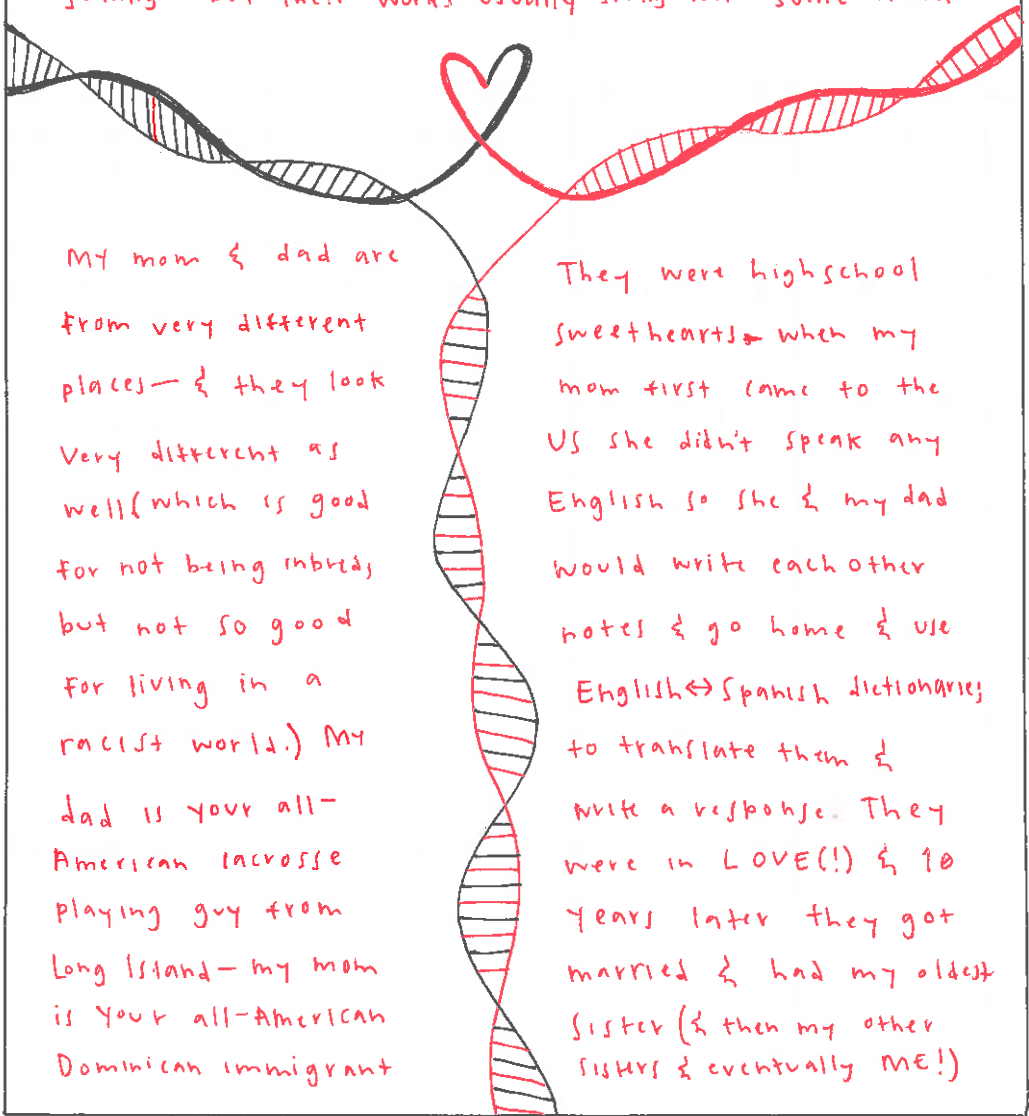 but their works usually
My mom & dad are
from very different
places— & they look
very different as
well (which is good
for not being inbred,
but not so good
for living in a
racist world.) My
dad is your all-
American lacrosse
playing guy from
Long Island— my mom
is your all-American
Dominican immigrant
They were highschool
sweethearts. when my
mom first came to the
US she didn't speak any
English so she & my dad
would write each other
notes & go home & use
English↔Spanish dictionaries
to translate them &
write a response. They
were in LOVE(!) & 10
years later they got
married & had my oldest
sister (& then my other
sisters & eventually ME!)